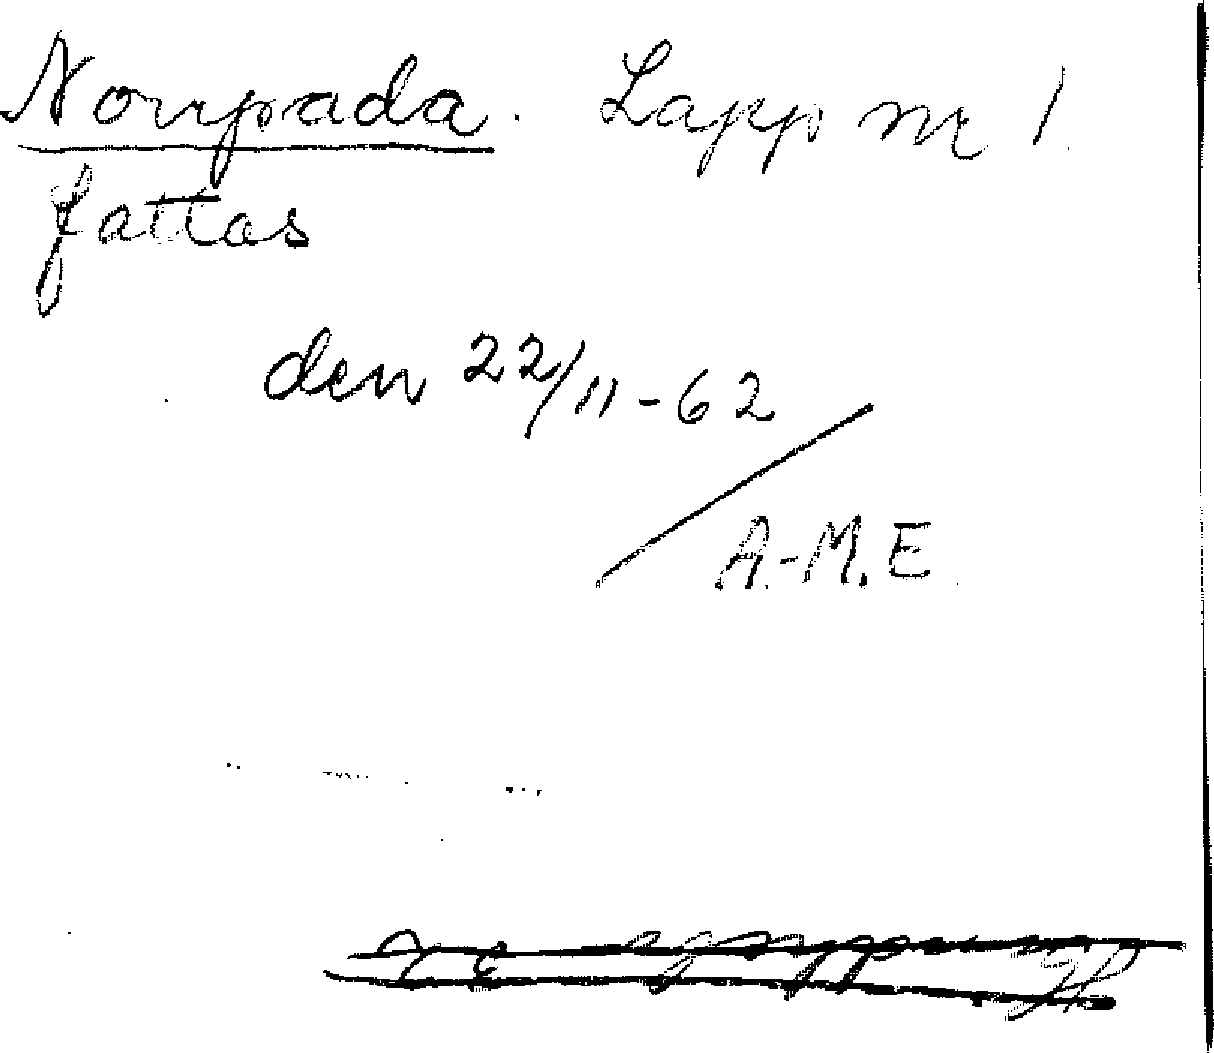 Norrpada. Lapp nr 1
fattas
den 22/11-62
A.-M.E